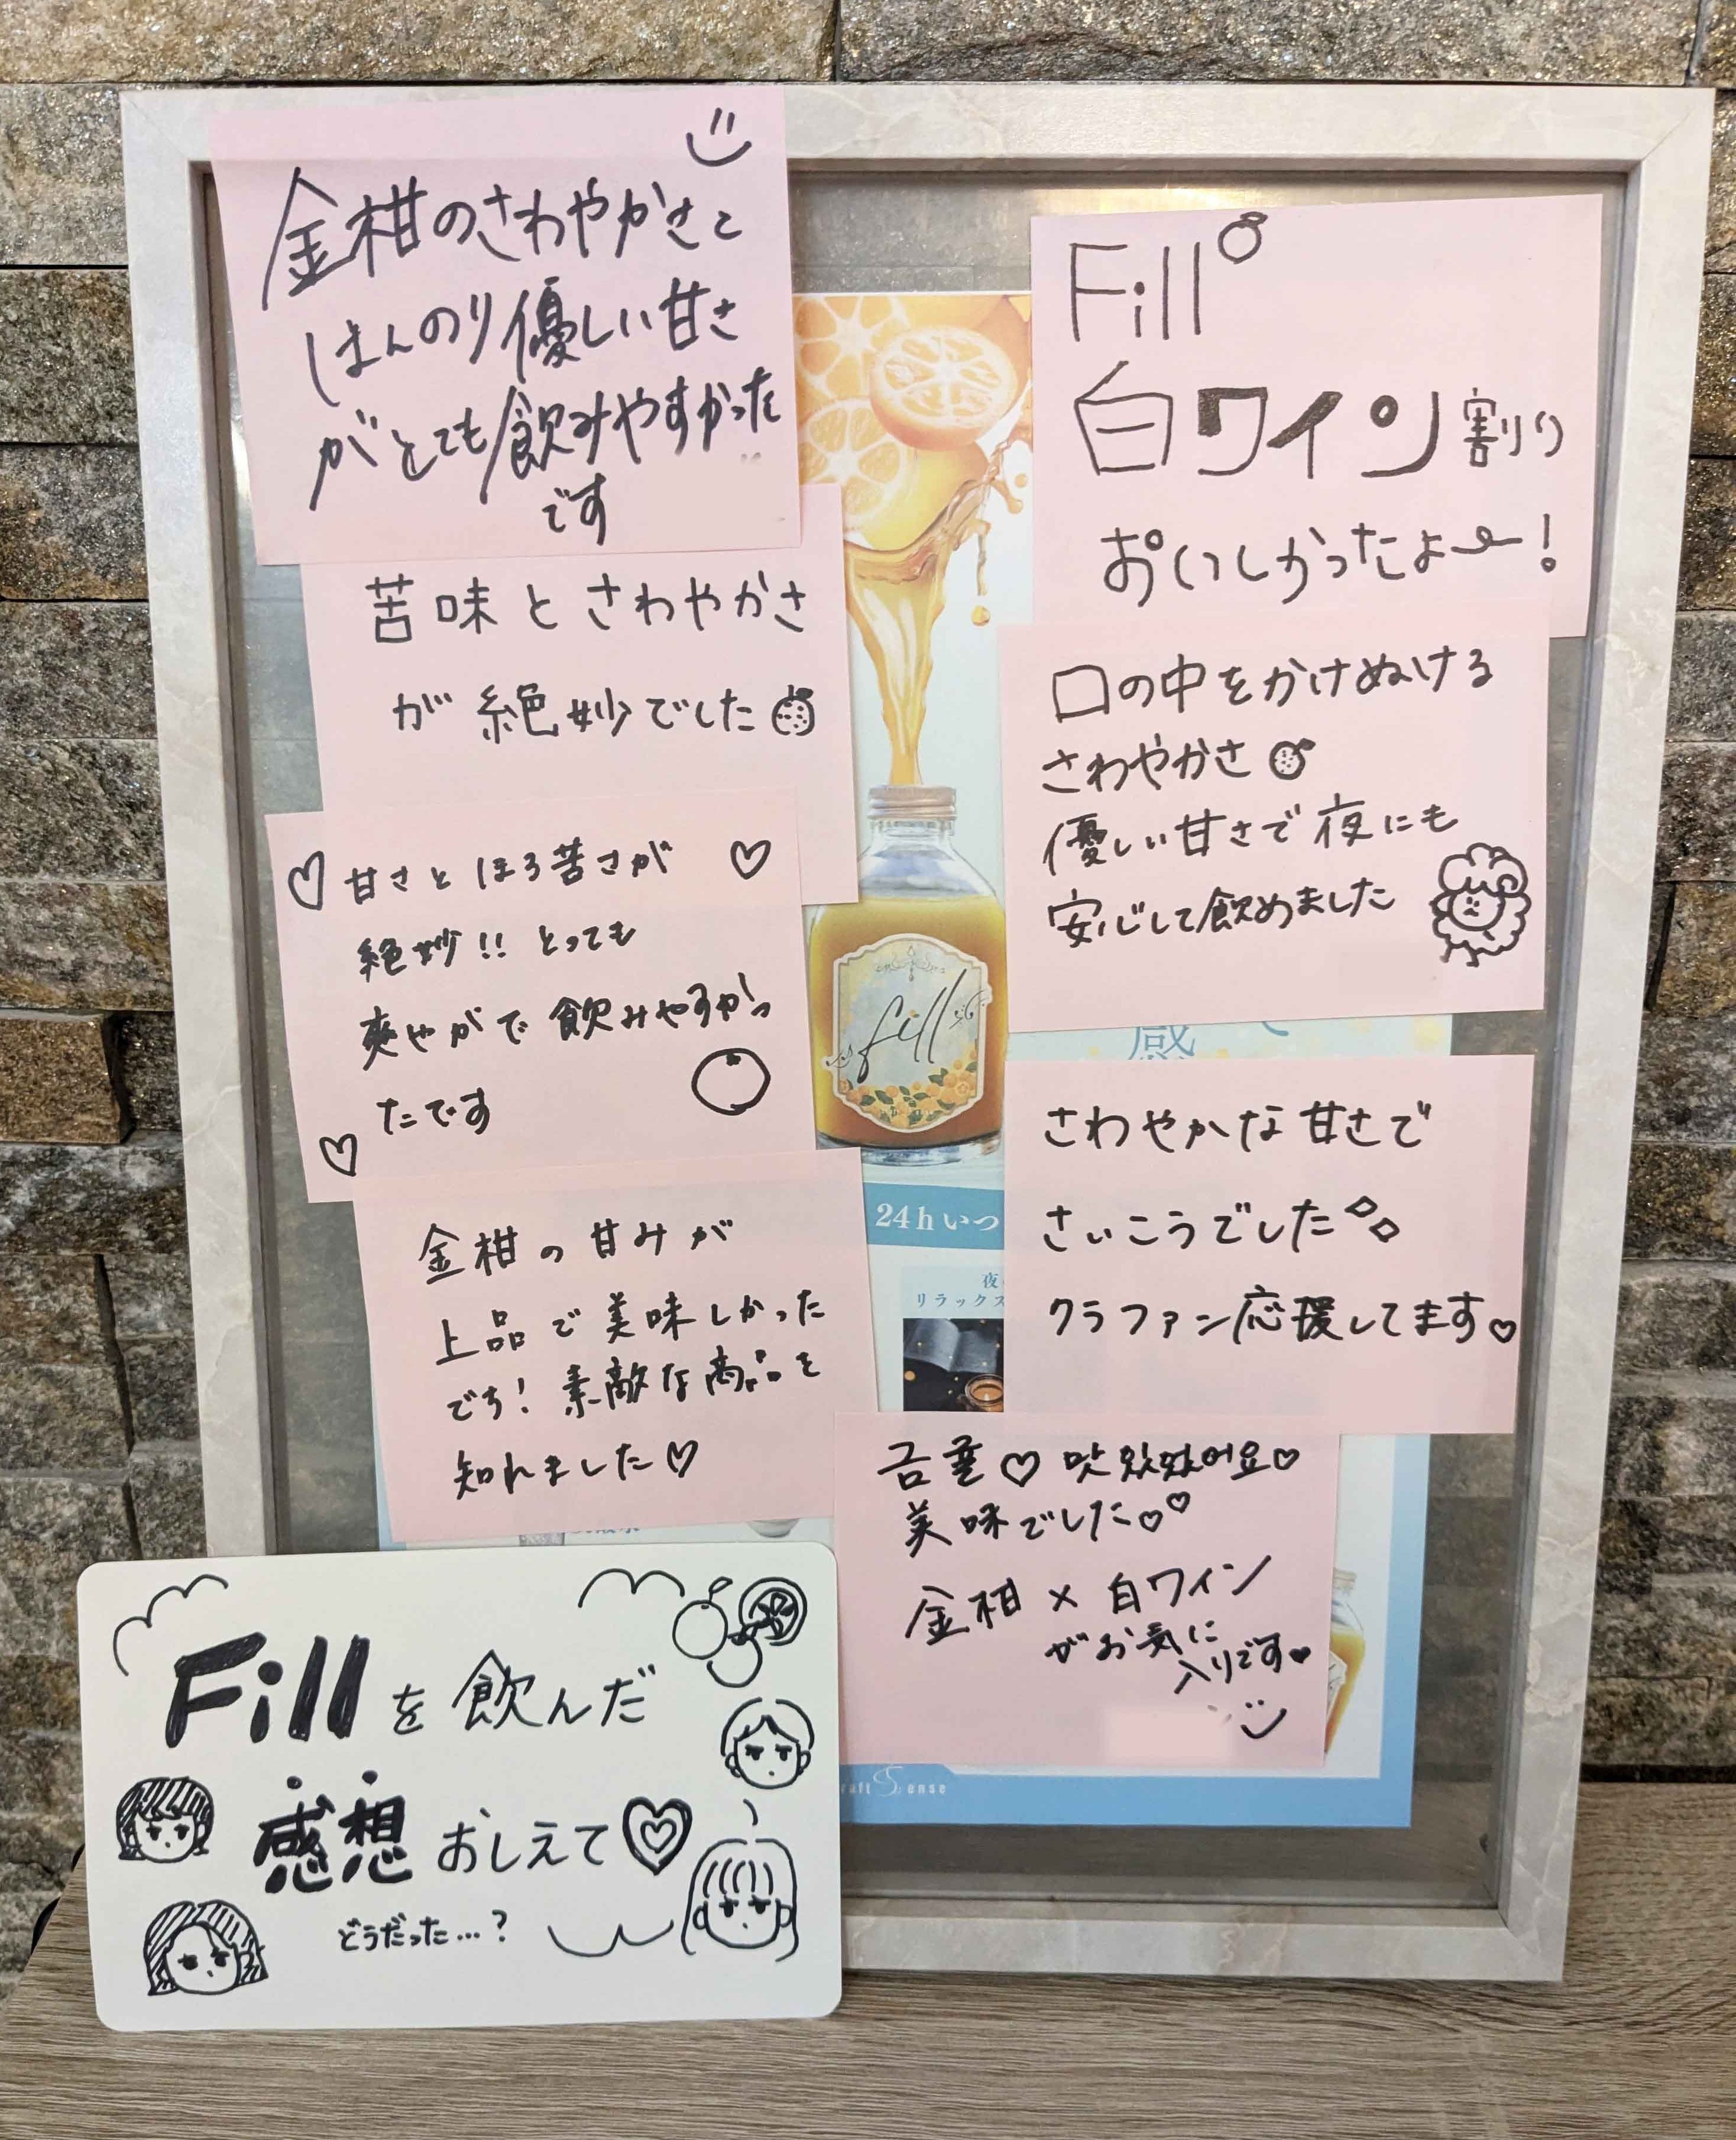 金柑のさわやかさと
ほんのり優しい甘さ
がとても飲みやすかった
です
苦味とさわやかさ
が絶妙でした
甘さとほろ苦さが
絶妙!! とっても
爽やかで飲みやすかっ
たです
金柑の甘みが
上品で美味しかった
です! 素敵な商品を
知れました♡
Fill
白ワイン割り
おいしかったよー!
口の中をかけぬける
さわやかさ
優しい甘さで夜にも
安心して飲めました
さわやかな甘さで
さいこうでした
クラファン応援してます♡
맛있었어요♡
美味でした♡♡
金柑×白ワイン
がお気に
入りです♥
fill
感
24hいつ
夜
リラックス
raft Sense
Fillを飲んだ
感想おしえて♡
どうだった…?